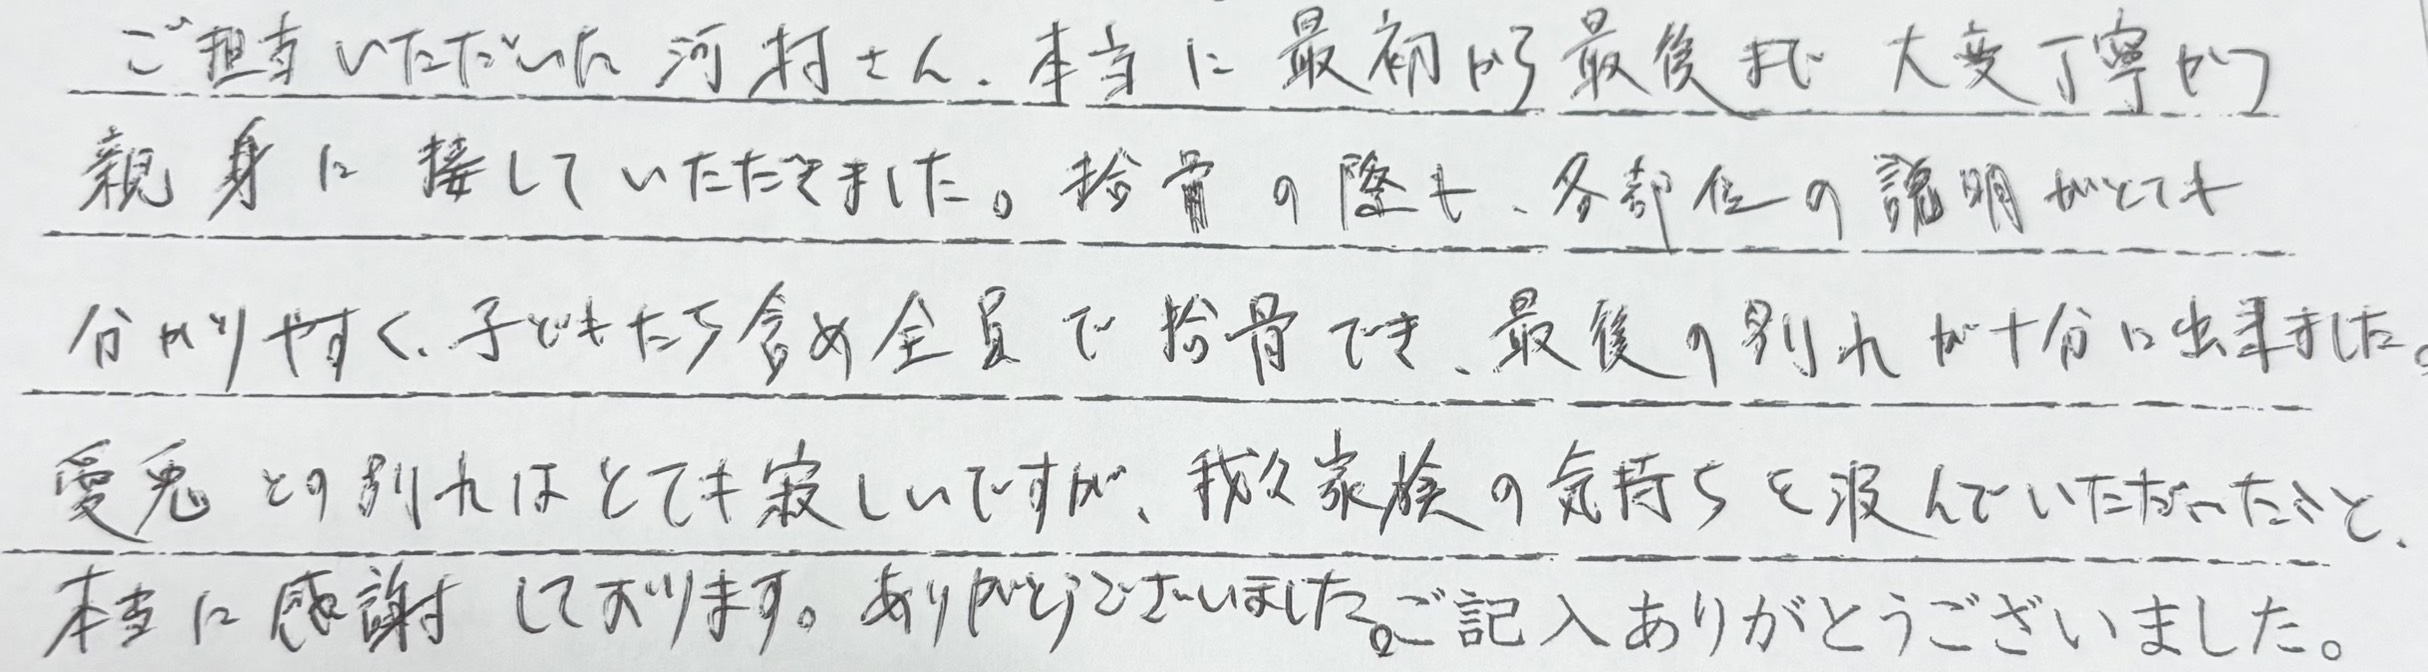 ご担当いただいた河村さん、本当に最初から最後まで大変丁寧かつ
親身に接していただきました。拾骨の際も、各部位の説明がとても
分かりやすく、子どもたち含め全員で拾骨でき、最後の別れが十分に出来ました。
愛兎との別れはとても寂しいですが、我々家族の気持ちを汲んでいただいたこと、
本当に感謝しております。ありがとうございました。ご記入ありがとうございました。